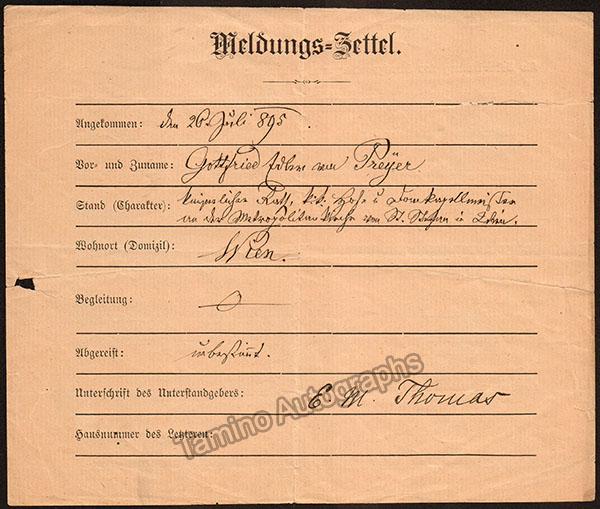 Meldungs-Zettel.
Angekommen: den 26. Juli 895.
Vor- und Zuname: Gottfried Edler von Preÿer
Stand (Charakter): kaiserlicher Rath, k. k. Hof- u Domkapellmeister
an der Metropolitan Kirche von St. Stefan
Wohnort (Domizil): Wien.
Begleitung:
Abgereist: unbestimt.
Unterschrift des Unterstandgebers: E. M. Thomas
Hausnummer des Letzteren:
Tamino Autographs